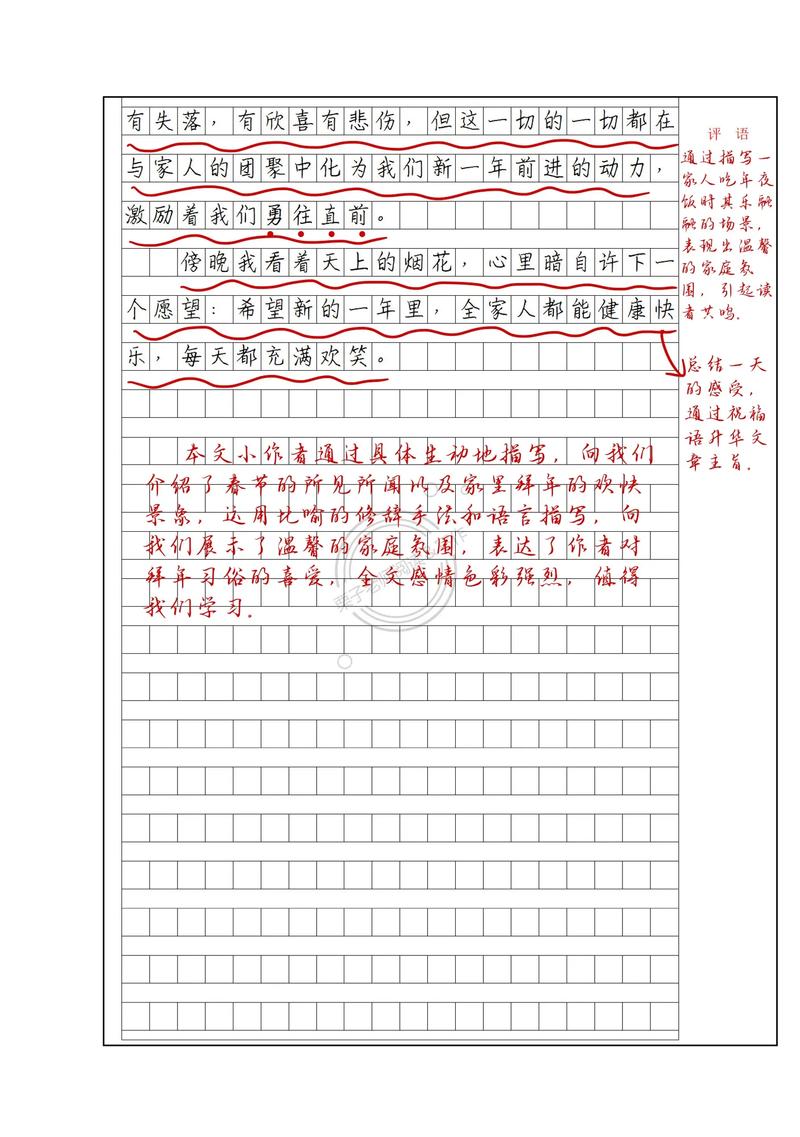 有失落，有欣喜有悲伤，但这一切的一切都在
与家人的团聚中化为我们新一年前进的动力，
激励着我们勇往直前。
傍晚我看着天上的烟花，心里暗自许下一
个愿望：希望新的一年里，全家人都能健康快
乐，每天都充满欢笑。
本文小作者通过具体生动地描写，向我们
介绍了春节的所见所闻以及家里拜年的欢快
景象，运用比喻的修辞手法和语言描写，向
我们展示了温馨的家庭氛围，表达了作者对
拜年习俗的喜爱，全文感情色彩强烈，值得
我们学习．
评 语
通过描写一
家人吃年夜
饭时其乐融
融的场景，
表现出温馨
的家庭氛
围，引起读
者共鸣．
总结一天
的感受，
通过祝福
语升华文
章主旨．